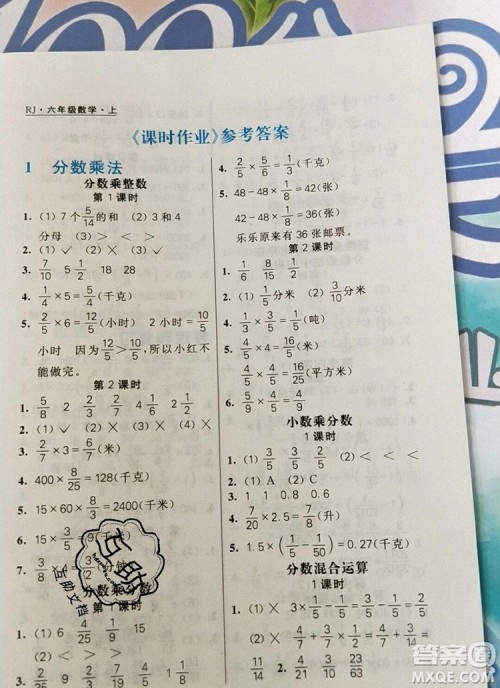 RJ·六年级数学·上
《课时作业》参考答案
1 分数乘法
分数乘整数
第1课时
1. (1)7个5/14的和 (2)3和4
分母 (3)> < >
2. (1)✓ (2)× (3)✓
3. 7/10 5 1/2 18 28
4. 1/4×5=5/4(千克)
5. 2/5×6=12/5(小时) 2小时=10/5
小时 因为12/5>10/5,所以小红不
能做完。
第2课时
1. 5/8 2/5 2 4 1/6 2 1/2
2. (1)✓ (2)× (3)× (4)×
3. 2/7×3=6/7(米)
4. 400×8/25=128(千克)
5. 15×60×8/3=2400(千米)
6. 15×3/5=9(米)
7. 3/8
分数乘分数
第1课时
1. (1)6 (2)4/15 1/9 15
2. (1)× (2)× (3)✓
4. 2/5×5/6=1/3(千克)
5. 48-48×1/8=42(张)
42-42×1/7=36(张)
乐乐原来有36张邮票。
第2课时
1. 1/6 8/15 1/2
2. (1)1/5分米 (2)3/10分米
4. 1/4×3/5=3/20(吨)
5. 4/5×4=16/5(米)
4/5×4/5=16/25(平方米)
6. 2/9
小数乘分数
1课时
1. (1)3/5 3/5 (2)< < >
2. (1)A (2)C
3. 1 1 0.8 0.6
4. 7/20×2.5=7/8(升)
5. 1.5×(1/5-1/50)=0.27(千克)
分数混合运算
1课时
互助
互助文档
答案圈
MXQE.COM